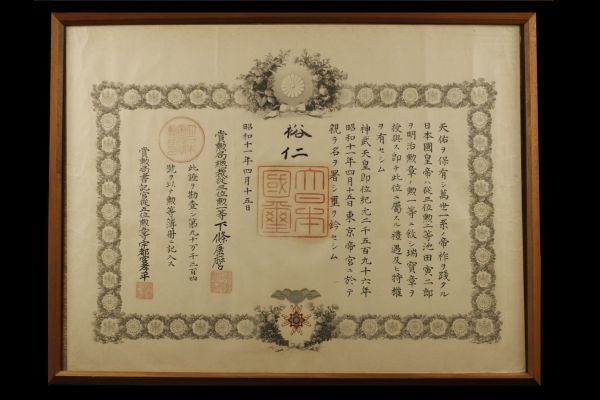 天佑ヲ保有シ萬世一系ノ帝祚ヲ踐タル
日本國皇帝ハ從三位勲二等池田寅二郎
ヲ明治勲章ノ勲一等ニ敘シ瑞寶章ヲ
授與ス即チ此位ニ屬スル禮遇及ヒ特權
ヲ有セシム
神武天皇即位紀元二千五百九十六年
昭和十一年四月十五日東京帝宮ニ於テ
親ラ名ヲ署シ璽ヲ鈐セシム
裕仁
大日本國璽
昭和十一年四月十五日
賞勲局總裁從三位勲一等下條康麿
此證ヲ勘査シ第九十万千二百四
號ヲ以テ勲等簿册ニ記入ス
賞勲局書記官從五位勲六等宇都宮孝平